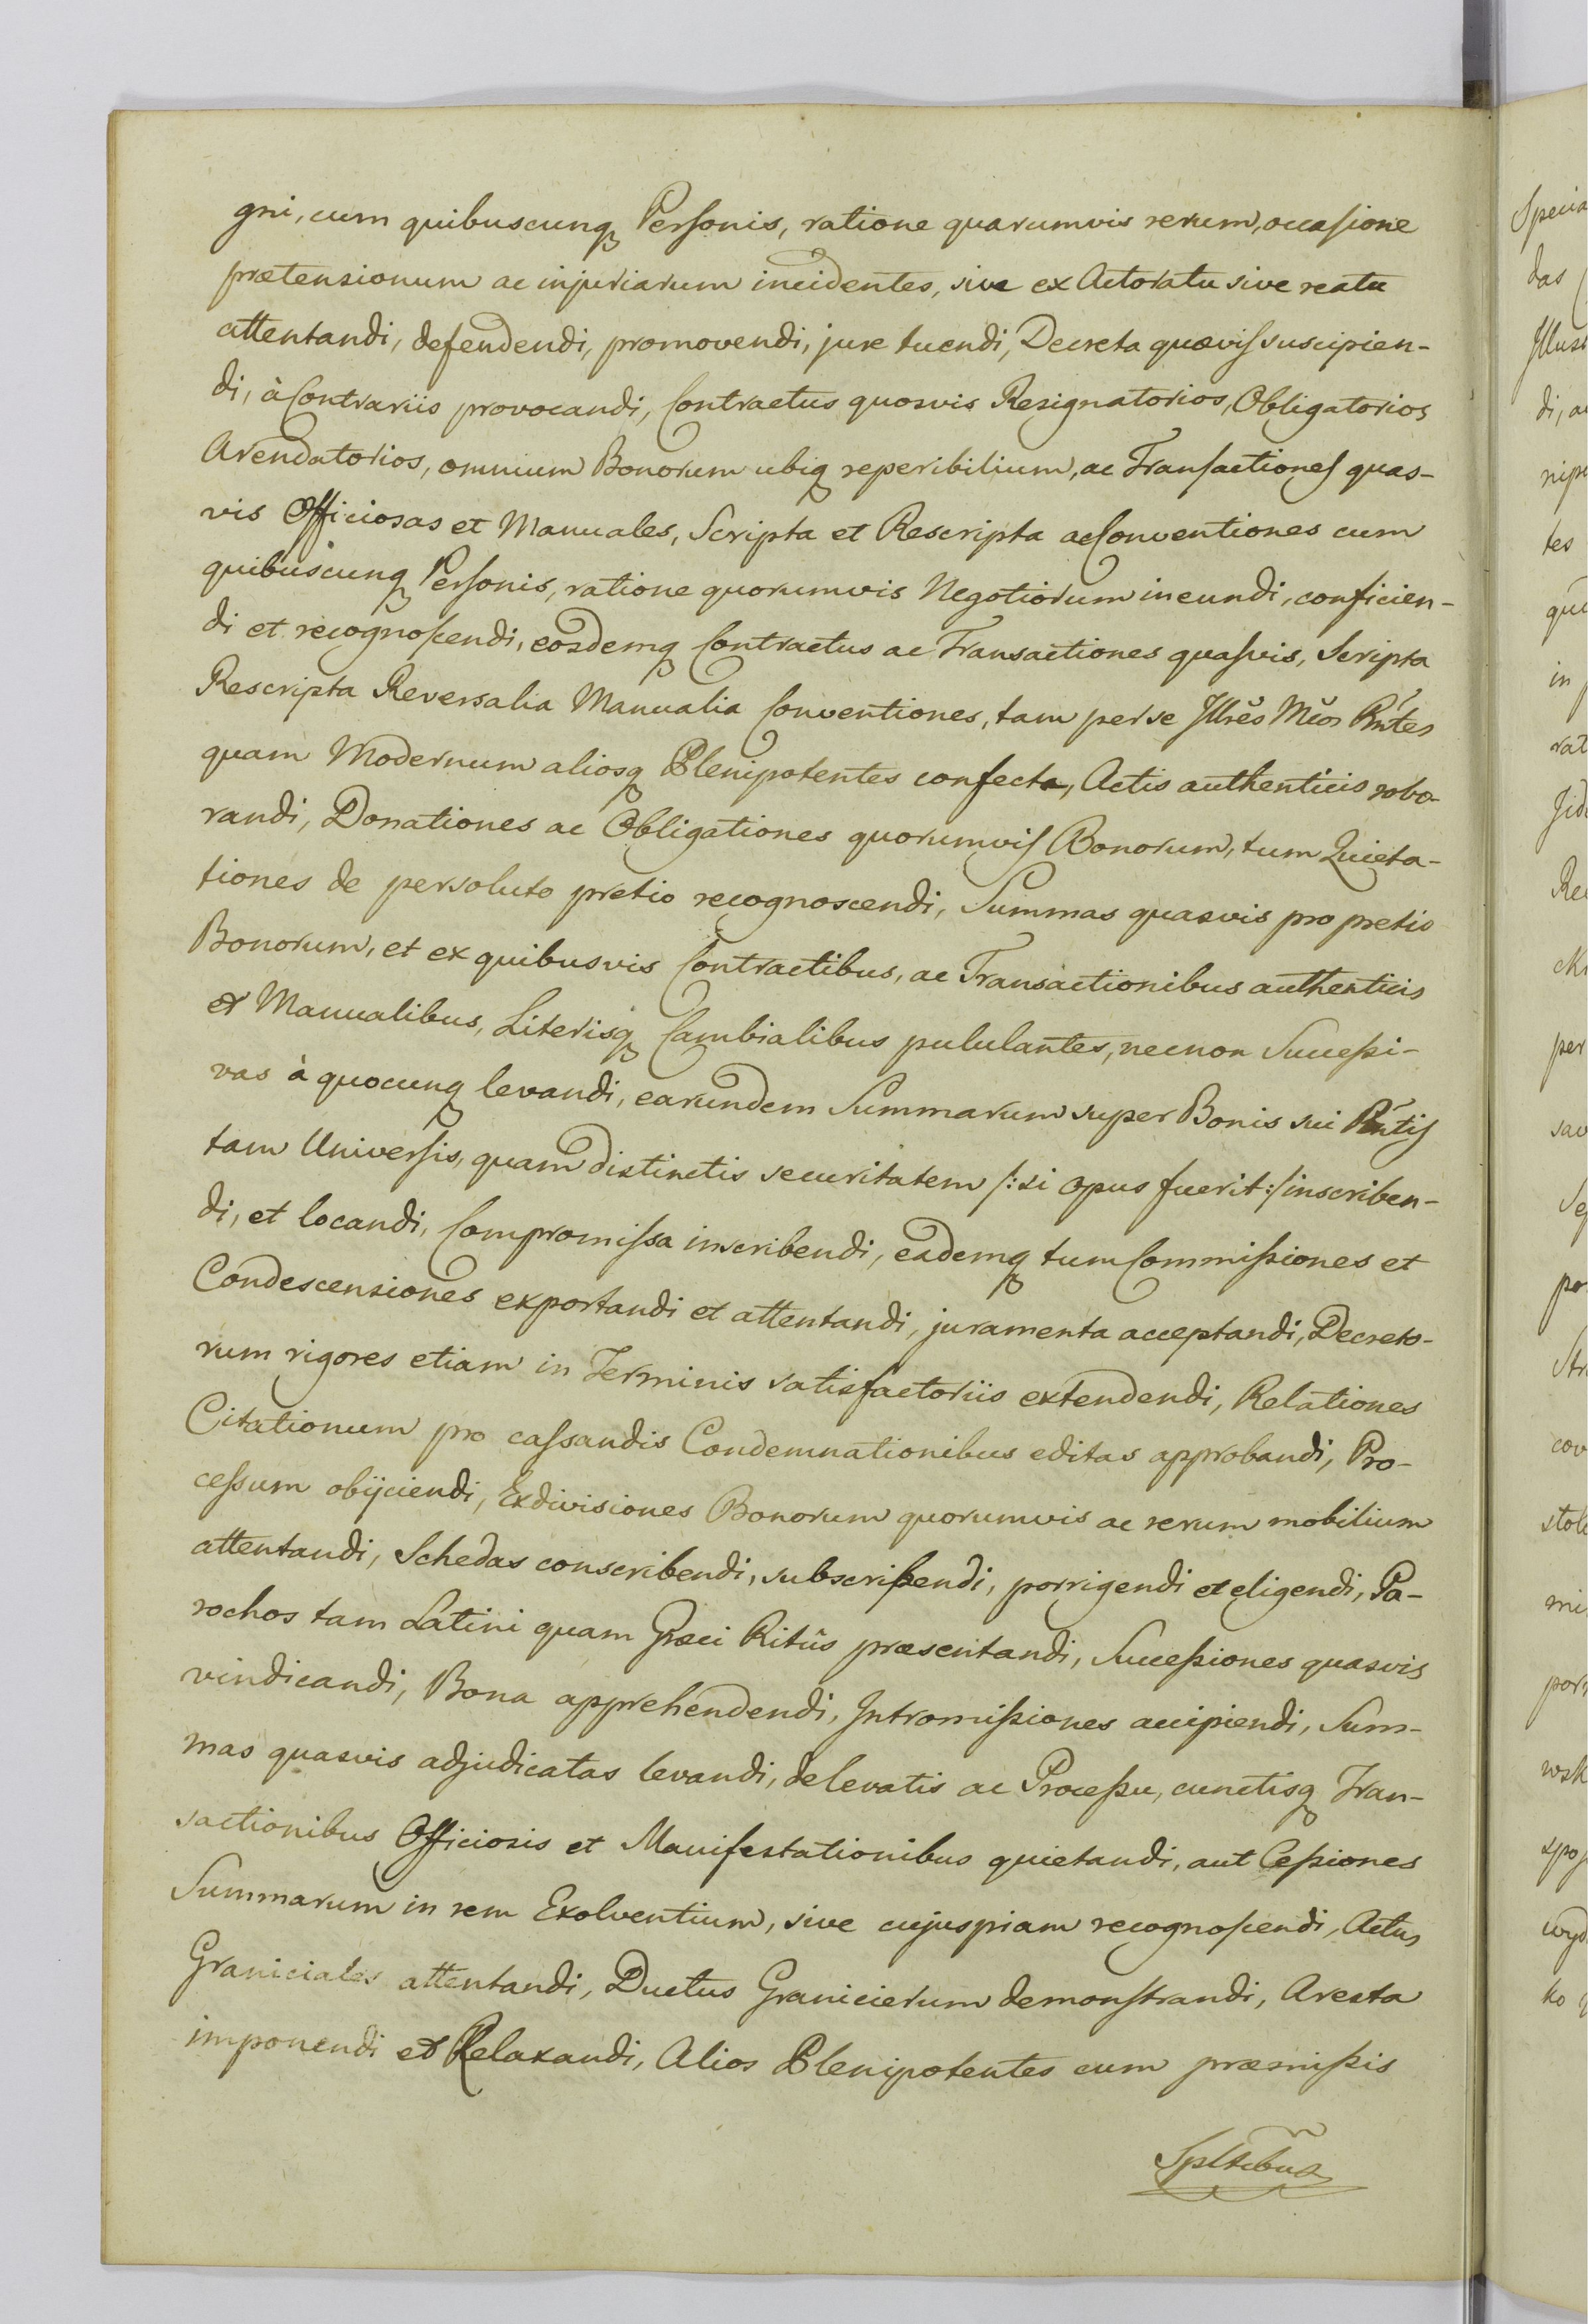 gni, cum quibuscunq Personis, ratione quarumvis rerum, occasione
prætensionum ac injuriarum incidentes, sive ex Actoratu sive reatu
attentandi, defendendi, promovendi, jure tuendi, Decreta quævis suscipien-
di, à Contrariis provocandi, Contractus quosvis Resignatorios, Obligatorios
Arendatorios, omnium Bonorum ubiq reperibilium, ac Transactiones quas-
vis Officiosas et Manuales, Scripta et Rescripta ac Conventiones cum
quibuscunq Personis, ratione quorumvis Negotiorum ineundi, conficien-
di et recognoscendi, eosdemq Contractus ac Transactiones quasvis, Scripta
Rescripta Reversalia Manualia Conventiones, tam per se Jllres Mcos Pntes
quam Modernum aliosq Plenipotentes confecta, Actis authenticis robo-
randi, Donationes ac Obligationes quorumvis Bonorum, tum Quieta-
tiones de persoluto pretio recognoscendi, Summas quasvis pro pretio
Bonorum, et ex quibusvis Contractibus, ac Transactionibus authenticis
et Manualibus, Literisq Cambialibus pululantes, necnon Successi-
vas à quocunq levandi, earundem Summarum super Bonis sui Pntis
tam Universis, quam distinctis securitatem /:si opus fuerit:/ inscriben-
di, et locandi, Compromissa inscribendi, eademq tum Commissiones et
Condescensiones exportandi et attentandi, juramenta acceptandi, Decreto-
rum rigores etiam in Terminis satisfactoriis extendendi, Relationes
Citationum pro cassandis Condemnationibus editas approbandi, Pro-
cessum obijciendi, Exdivisiones Bonorum quorumvis ac rerum mobilium
attentandi, Schedas conscribendi, subscribendi, porrigendi et eligendi, Pa-
rochos tam Latini quam Græci Ritûs præsentandi, Successiones quasvis
vindicandi, Bona apprehendendi, Intromissiones accipiendi, Sum-
mas quasvis adjudicatas levandi, de levatis ac Processu, cunctisq Tran-
sactionibus Officiosis et Manifestationibus quietandi, aut Cessiones
Summarum in rem Exolventium, sive cujuspiam recognoscendi, Actus
Graniciales attentandi, Ductus Granicierum demonstrandi, Aresta
imponendi et Relaxandi, Alios Plenipotentes cum præmissis
Spltibus